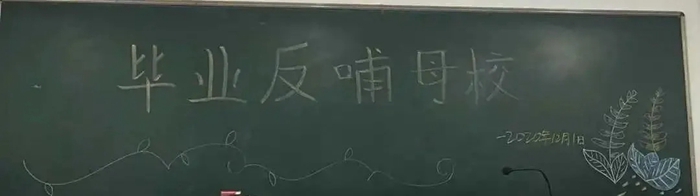 毕业反哺母校
-2022年12月1日